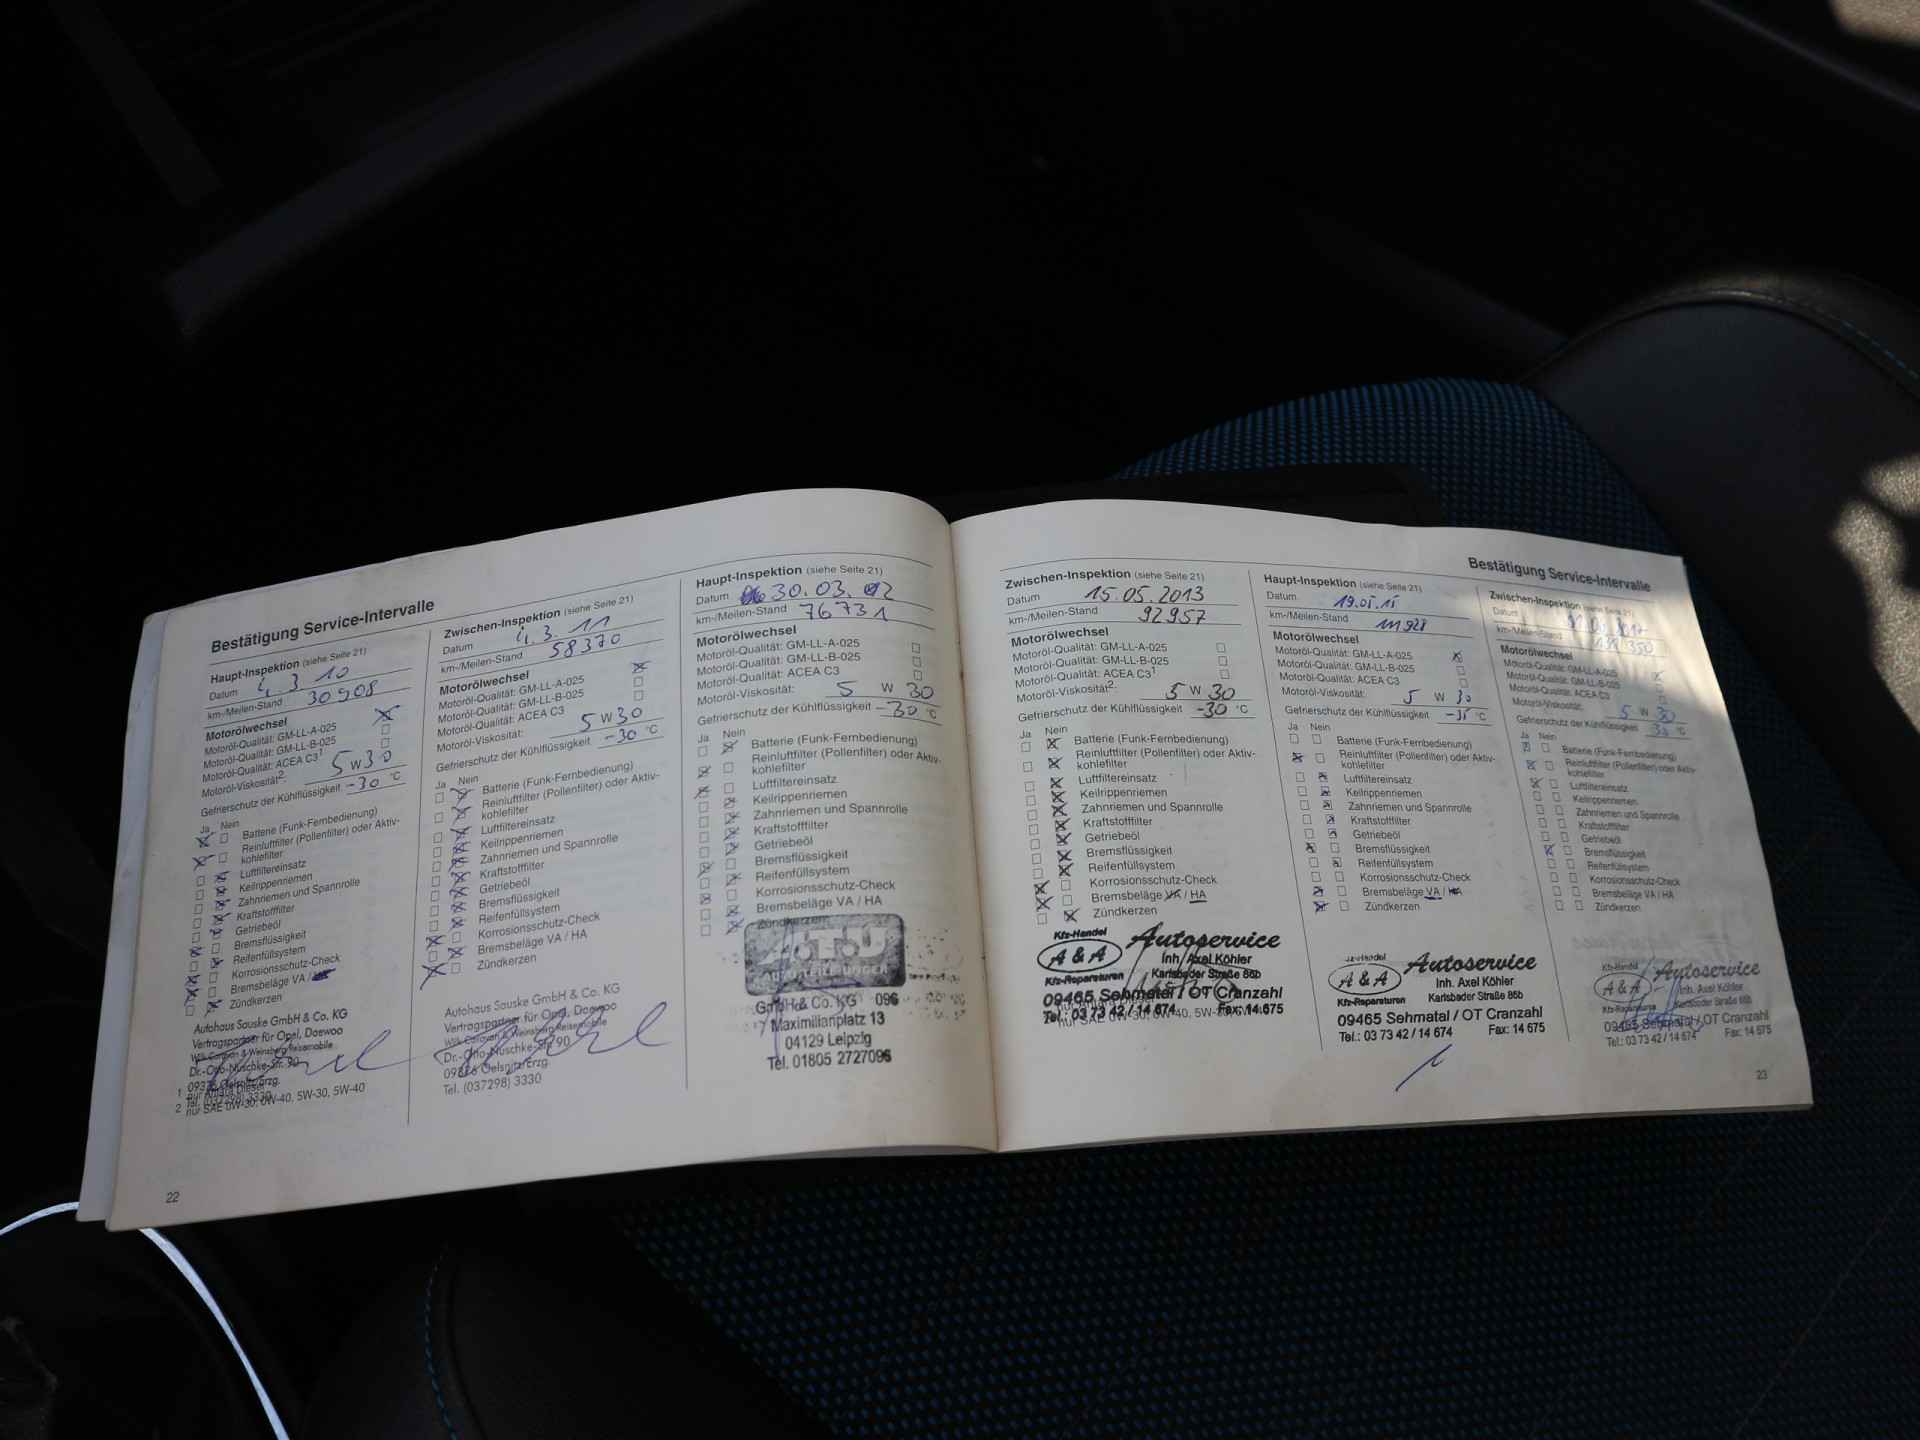 Bestätigung Service-Intervalle
Haupt-Inspektion (siehe Seite 21)
Datum 3 10
km-/Meilen-Stand 30908
Motorölwechsel
Motoröl-Qualität: GM-LL-A-025
Motoröl-Qualität: GM-LL-B-025
Motoröl-Qualität: ACEA C3¹
Motoröl-Viskosität²: 5 W 30
Gefrierschutz der Kühlflüssigkeit -30 °C
Ja Nein
Batterie (Funk-Fernbedienung)
Reinluftfilter (Pollenfilter) oder Aktiv-
kohlefilter
Luftfiltereinsatz
Keilrippenriemen
Zahnriemen und Spannrolle
Kraftstofffilter
Getriebeöl
Bremsflüssigkeit
Reifenfüllsystem
Korrosionsschutz-Check
Bremsbeläge VA /
Zündkerzen
Autohaus Sauske GmbH & Co. KG
Vertragspartner für Opel, Daewoo
Wilk Caravan & Weinsberg Reisemobile
Dr.-Otto-Nuschke-Str. 90
09376 Oelsnitz/Erzg.
Tel. (037298) 3330
1 nur Antara Diesel
2 nur SAE 0W-30, 0W-40, 5W-30, 5W-40
22
Zwischen-Inspektion (siehe Seite 21)
Datum 3. 11
km-/Meilen-Stand 58370
Motorölwechsel
Motoröl-Qualität: GM-LL-A-025
Motoröl-Qualität: GM-LL-B-025
Motoröl-Qualität: ACEA C3
Motoröl-Viskosität: 5 W 30
Gefrierschutz der Kühlflüssigkeit -30 °C
Ja Nein
Batterie (Funk-Fernbedienung)
Reinluftfilter (Pollenfilter) oder Aktiv-
kohlefilter
Luftfiltereinsatz
Keilrippenriemen
Zahnriemen und Spannrolle
Kraftstofffilter
Getriebeöl
Bremsflüssigkeit
Reifenfüllsystem
Korrosionsschutz-Check
Bremsbeläge VA / HA
Zündkerzen
Autohaus Sauske GmbH & Co. KG
Vertragspartner für Opel, Daewoo
Wilk Caravan & Weinsberg Reisemobile
Dr.-Otto-Nuschke-Str. 90
09376 Oelsnitz/Erzg.
Tel. (037298) 3330
Haupt-Inspektion (siehe Seite 21)
Datum 30.03.
km-/Meilen-Stand 76731
Motorölwechsel
Motoröl-Qualität: GM-LL-A-025
Motoröl-Qualität: GM-LL-B-025
Motoröl-Qualität: ACEA C3
Motoröl-Viskosität: 5 W 30
Gefrierschutz der Kühlflüssigkeit -30 °C
Ja Nein
Batterie (Funk-Fernbedienung)
Reinluftfilter (Pollenfilter) oder Aktiv-
kohlefilter
Luftfiltereinsatz
Keilrippenriemen
Zahnriemen und Spannrolle
Kraftstofffilter
Getriebeöl
Bremsflüssigkeit
Reifenfüllsystem
Korrosionsschutz-Check
Bremsbeläge VA / HA
Zündkerzen
A.T.U
GmbH & Co. KG 096
Maximilianplatz 13
04129 Leipzig
Tel. 01805 2727096
Bestätigung Service-Intervalle
Zwischen-Inspektion (siehe Seite 21)
Datum 15.05.2013
km-/Meilen-Stand 92957
Motorölwechsel
Motoröl-Qualität: GM-LL-A-025
Motoröl-Qualität: GM-LL-B-025
Motoröl-Qualität: ACEA C3¹
Motoröl-Viskosität²: 5 W 30
Gefrierschutz der Kühlflüssigkeit -30 °C
Ja Nein
Batterie (Funk-Fernbedienung)
Reinluftfilter (Pollenfilter) oder Aktiv-
kohlefilter
Luftfiltereinsatz
Keilrippenriemen
Zahnriemen und Spannrolle
Kraftstofffilter
Getriebeöl
Bremsflüssigkeit
Reifenfüllsystem
Korrosionsschutz-Check
Bremsbeläge VA / HA
Zündkerzen
Kfz-Handel
A & A
Kfz-Reparaturen
Autoservice
Inh. Axel Köhler
Karlsbader Straße 86b
09465 Sehmatal / OT Cranzahl
Tel.: 03 73 42 / 14 674 Fax: 14 675
nur SAE 0W-30, 0W-40, 5W-30,
Haupt-Inspektion (siehe Seite 21)
Datum 19.05.15
km-/Meilen-Stand 111928
Motorölwechsel
Motoröl-Qualität: GM-LL-A-025
Motoröl-Qualität: GM-LL-B-025
Motoröl-Qualität: ACEA C3
Motoröl-Viskosität: 5 W 30
Gefrierschutz der Kühlflüssigkeit -35 °C
Ja Nein
Batterie (Funk-Fernbedienung)
Reinluftfilter (Pollenfilter) oder Aktiv-
kohlefilter
Luftfiltereinsatz
Keilrippenriemen
Zahnriemen und Spannrolle
Kraftstofffilter
Getriebeöl
Bremsflüssigkeit
Reifenfüllsystem
Korrosionsschutz-Check
Bremsbeläge VA / HA
Zündkerzen
Kfz-Handel
A & A
Kfz-Reparaturen
Autoservice
Inh. Axel Köhler
Karlsbader Straße 86b
09465 Sehmatal / OT Cranzahl
Tel.: 03 73 42 / 14 674 Fax: 14 675
Zwischen-Inspektion (siehe Seite 21)
Datum
km-/Meilen-Stand
Motorölwechsel
Motoröl-Qualität: GM-LL-A-025
Motoröl-Qualität: GM-LL-B-025
Motoröl-Qualität: ACEA C3
Motoröl-Viskosität: 5 W 30
Gefrierschutz der Kühlflüssigkeit °C
Ja Nein
Batterie (Funk-Fernbedienung)
Reinluftfilter (Pollenfilter) oder Aktiv-
kohlefilter
Luftfiltereinsatz
Keilrippenriemen
Zahnriemen und Spannrolle
Kraftstofffilter
Getriebeöl
Bremsflüssigkeit
Reifenfüllsystem
Korrosionsschutz-Check
Bremsbeläge VA / HA
Zündkerzen
Kfz-Handel
A & A
Kfz-Reparaturen
Autoservice
Inh. Axel Köhler
Karlsbader Straße 86b
09465 Sehmatal / OT Cranzahl
Tel.: 03 73 42 / 14 674 Fax: 14 675
23